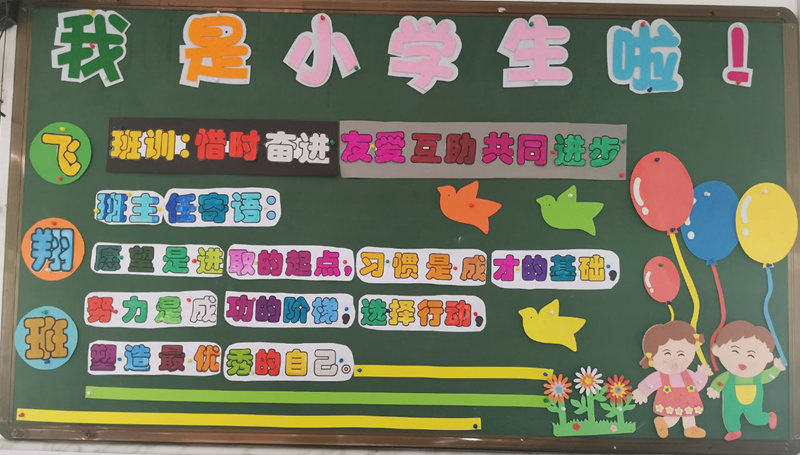 我是小学生啦！
飞翔班
班训：惜时奋进 友爱互助共同进步
班主任寄语：
愿望是进取的起点，习惯是成才的基础，
努力是成功的阶梯，选择行动，
塑造最优秀的自己。